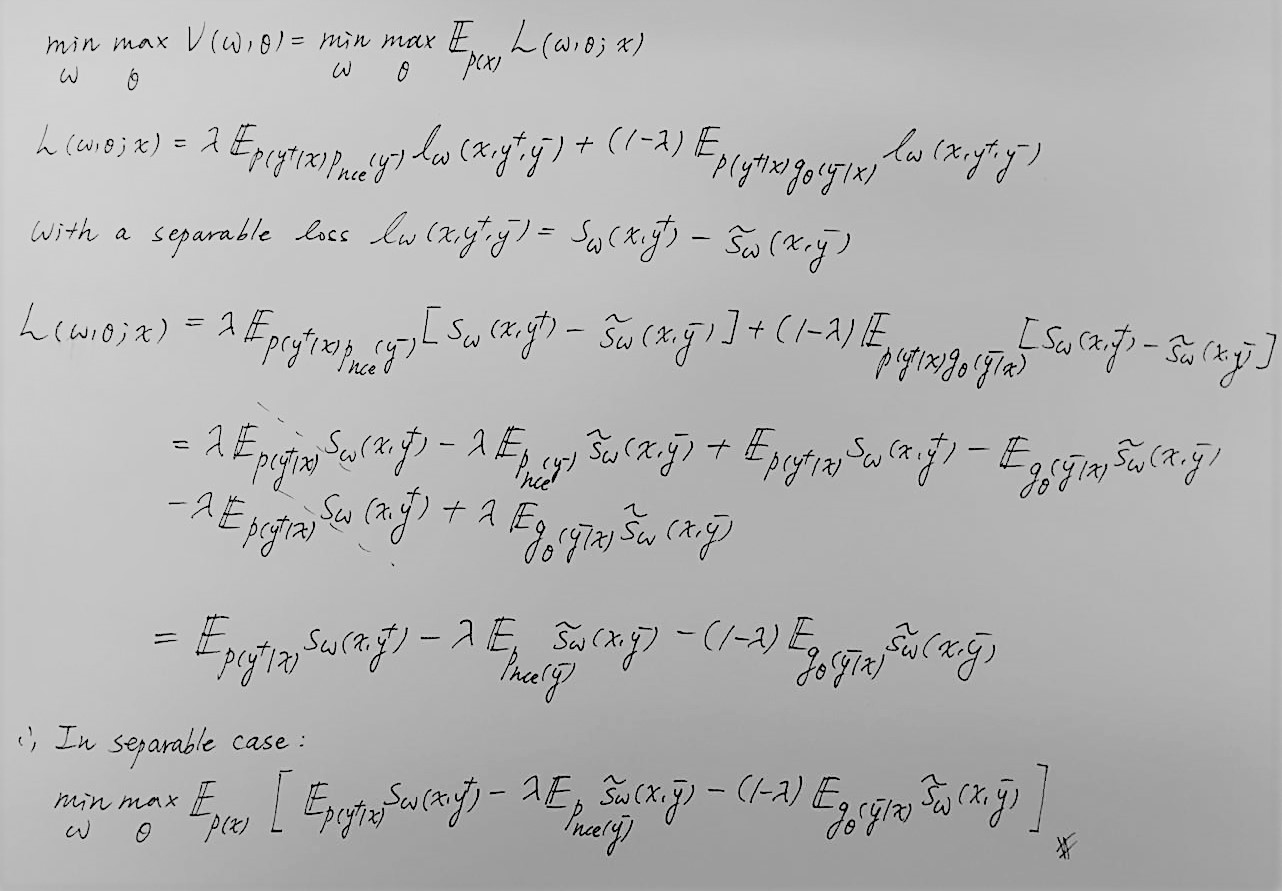 min_ω max_θ V(ω,θ) = min_ω max_θ 𝔼_{p(x)} L(ω,θ; x)
L(ω,θ; x) = λ 𝔼_{p(y⁺|x)p_{nce}(y⁻)} l_ω(x,y⁺,y⁻) + (1-λ) 𝔼_{p(y⁺|x)g_θ(y⁻|x)} l_ω(x,y⁺,y⁻)
With a separable loss l_ω(x,y⁺,y⁻) = S_ω(x,y⁺) - S̃_ω(x,y⁻)
L(ω,θ; x) = λ 𝔼_{p(y⁺|x)p_{nce}(y⁻)} [S_ω(x,y⁺) - S̃_ω(x,y⁻)] + (1-λ) 𝔼_{p(y⁺|x)g_θ(y⁻|x)} [S_ω(x,y⁺) - S̃_ω(x,y⁻)]
= λ 𝔼_{p(y⁺|x)} S_ω(x,y⁺) - λ 𝔼_{p_{nce}(y⁻)} S̃_ω(x,y⁻) + 𝔼_{p(y⁺|x)} S_ω(x,y⁺) - 𝔼_{g_θ(y⁻|x)} S̃_ω(x,y⁻)
- λ 𝔼_{p(y⁺|x)} S_ω(x,y⁺) + λ 𝔼_{g_θ(y⁻|x)} S̃_ω(x,y⁻)
= 𝔼_{p(y⁺|x)} S_ω(x,y⁺) - λ 𝔼_{p_{nce}(y⁻)} S̃_ω(x,y⁻) - (1-λ) 𝔼_{g_θ(y⁻|x)} S̃_ω(x,y⁻)
∴ In separable case:
min_ω max_θ 𝔼_{p(x)} [ 𝔼_{p(y⁺|x)} S_ω(x,y⁺) - λ 𝔼_{p_{nce}(y⁻)} S̃_ω(x,y⁻) - (1-λ) 𝔼_{g_θ(y⁻|x)} S̃_ω(x,y⁻) ]